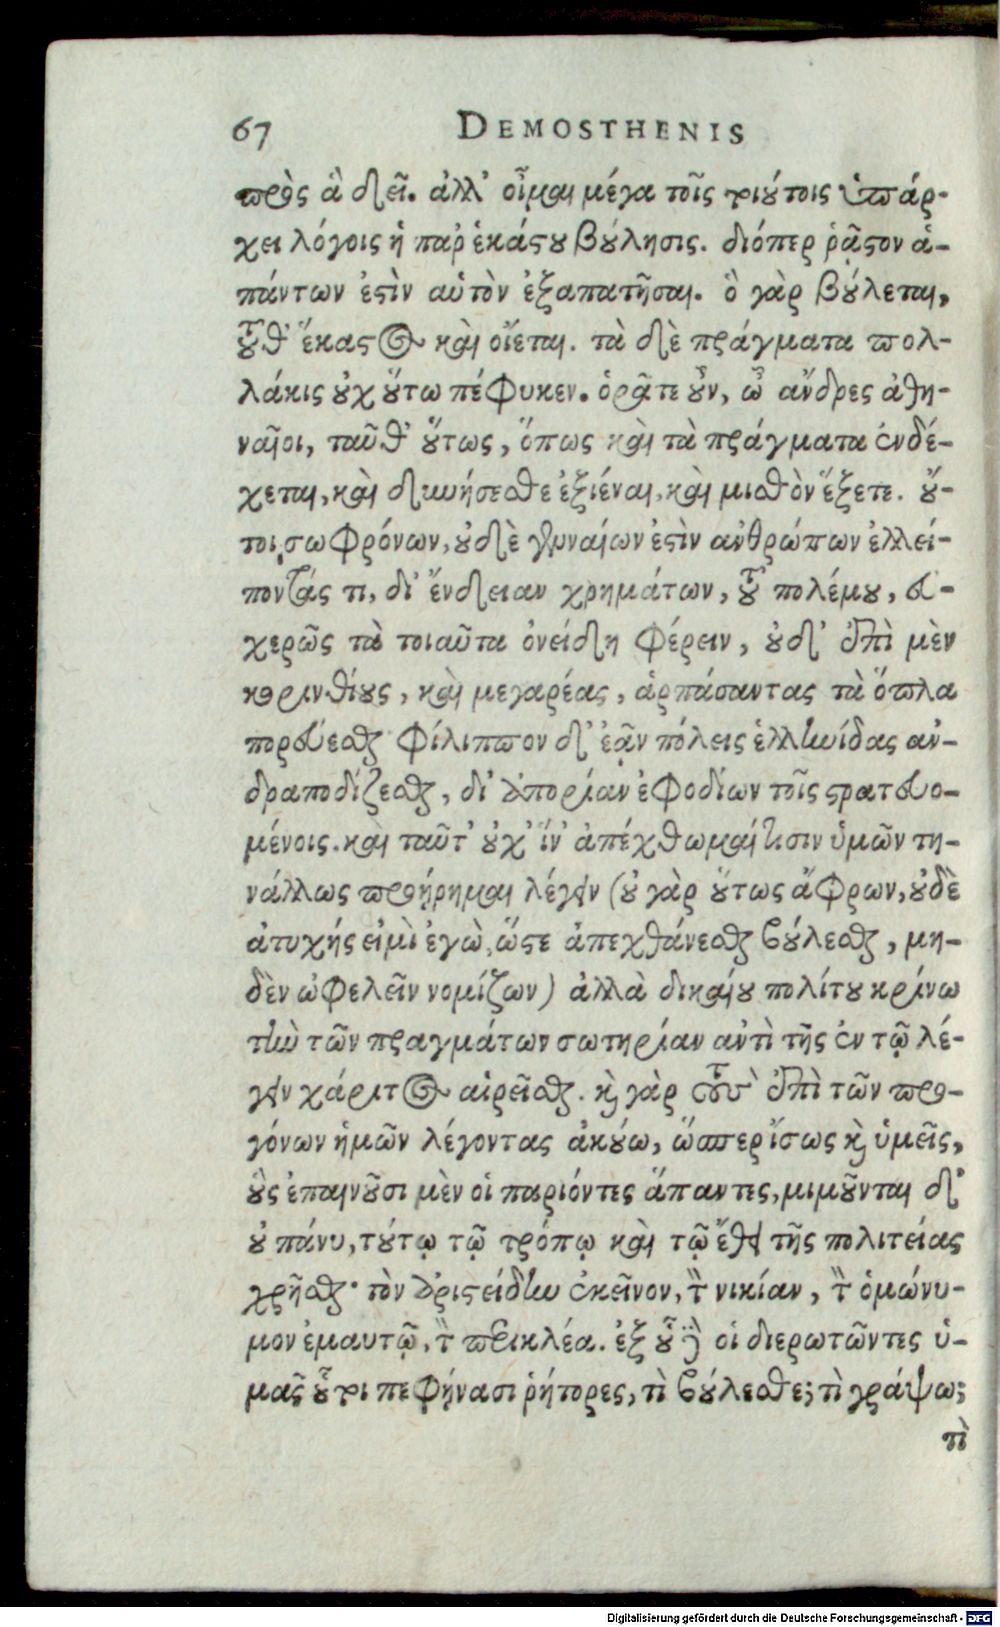 67 DEMOSTHENIS
πρὸς ἃ δεῖ. ἀλλ' οἶμαι μέγα τοῖς τοιούτοις ὑπάρ-
χει λόγοις ἡ παρ' ἑκάστου βούλησις. διόπερ ῥᾷστον ἁ-
πάντων ἐστὶν αὑτὸν ἐξαπατῆσαι. ὃ γὰρ βούλεται,
τοῦθ' ἕκαστος καὶ οἴεται. τὰ δὲ πράγματα πολ-
λάκις οὐχ οὕτω πέφυκεν. ὁρᾶτε οὖν, ὦ ἄνδρες ἀθη-
ναῖοι, ταῦθ' οὕτως, ὅπως καὶ τὰ πράγματα ἐνδέ-
χεται, καὶ δυνήσεσθε ἐξιέναι, καὶ μισθὸν ἕξετε. οὔ-
τοι σωφρόνων, οὐδὲ γενναίων ἐστὶν ἀνθρώπων ἐλλεί-
ποντάς τι, δι' ἔνδειαν χρημάτων, τοῦ πολέμου, εὐ-
χερῶς τὰ τοιαῦτα ὀνείδη φέρειν, οὐδ' ἐπὶ μὲν
κορινθίους, καὶ μεγαρέας, ἁρπάσαντας τὰ ὅπλα
πορεύεσθαι Φίλιππον δ' ἐᾶν πόλεις ἑλληνίδας ἀν-
δραποδίζεσθαι, δι' ἀπορίαν ἐφοδίων τοῖς στρατευο-
μένοις. καὶ ταῦτ' οὐχ' ἵν' ἀπέχθωμαί τισιν ὑμῶν τη-
νάλλως προῄρημαι λέγειν (οὐ γὰρ οὕτως ἄφρων, οὐδὲ
ἀτυχής εἰμὶ ἐγὼ, ὥστε ἀπεχθάνεσθαι βούλεσθαι, μη-
δὲν ὠφελεῖν νομίζων) ἀλλὰ δικαίου πολίτου κρίνω
τὴν τῶν πραγμάτων σωτηρίαν ἀντὶ τῆς ἐν τῷ λέ-
γειν χάριτος αἱρεῖσθαι. καὶ γὰρ τοὺς ἐπὶ τῶν προ-
γόνων ἡμῶν λέγοντας ἀκούω, ὥσπερ ἴσως καὶ ὑμεῖς,
οὓς ἐπαινοῦσι μὲν οἱ παριόντες ἅπαντες, μιμοῦνται δ'
οὐ πάνυ, τούτῳ τῷ τρόπῳ καὶ τῷ ἔθει τῆς πολιτείας
χρῆσθαι· τὸν ἀριστείδην ἐκεῖνον, τὸν νικίαν, τὸν ὁμώνυ-
μον ἐμαυτῷ, τὸν περικλέα. ἐξ οὗ δὲ οἱ διερωτῶντες ὑ-
μᾶς οὗτοι πεφήνασι ῥήτορες, τὶ βούλεσθε; τὶ γράψω;
τὶ
Digitalisierung gefördert durch die Deutsche Forschungsgemeinschaft - DFG